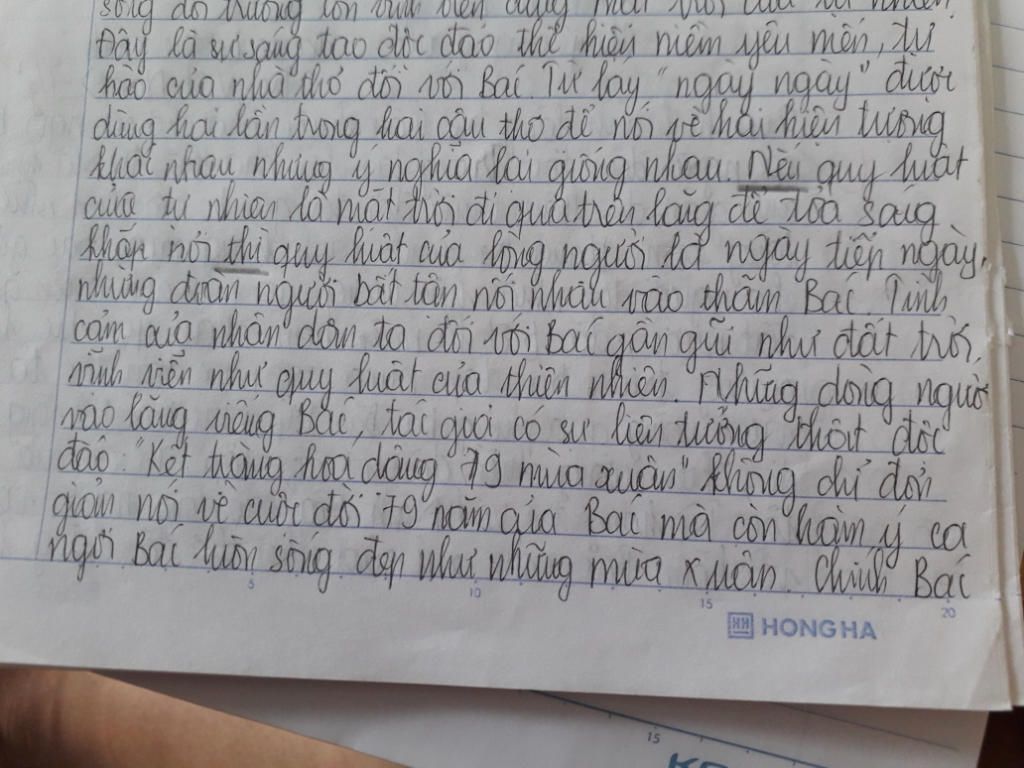 sống đời trường tồn vĩnh viễn
Đây là sự sáng tạo độc đáo thể hiện niềm yêu mến, tự
hào của nhà thơ đối với Bác. Từ láy "ngày ngày" được
dùng hai lần trong hai câu thơ để nói về hai hiện tượng
khác nhau nhưng ý nghĩa lại giống nhau. Nếu quy luật
của tự nhiên là mặt trời đi qua trên lăng để tỏa sáng
khắp nơi thì quy luật của lòng người là ngày tiếp ngày,
những đoàn người bất tận nối nhau vào thăm Bác. Tình
cảm của nhân dân ta đối với Bác gần gũi như đất trời,
vĩnh viễn như quy luật của thiên nhiên. Những dòng người
vào lăng viếng Bác, tác giả có sự liên tưởng thật độc
đáo: "Kết tràng hoa dâng 79 mùa xuân" không chỉ đơn
giản nói về cuộc đời 79 năm của Bác mà còn hàm ý ca
ngợi Bác luôn sống đẹp như những mùa xuân. Chính Bác
5 10 15 20
HH HONG HA
15